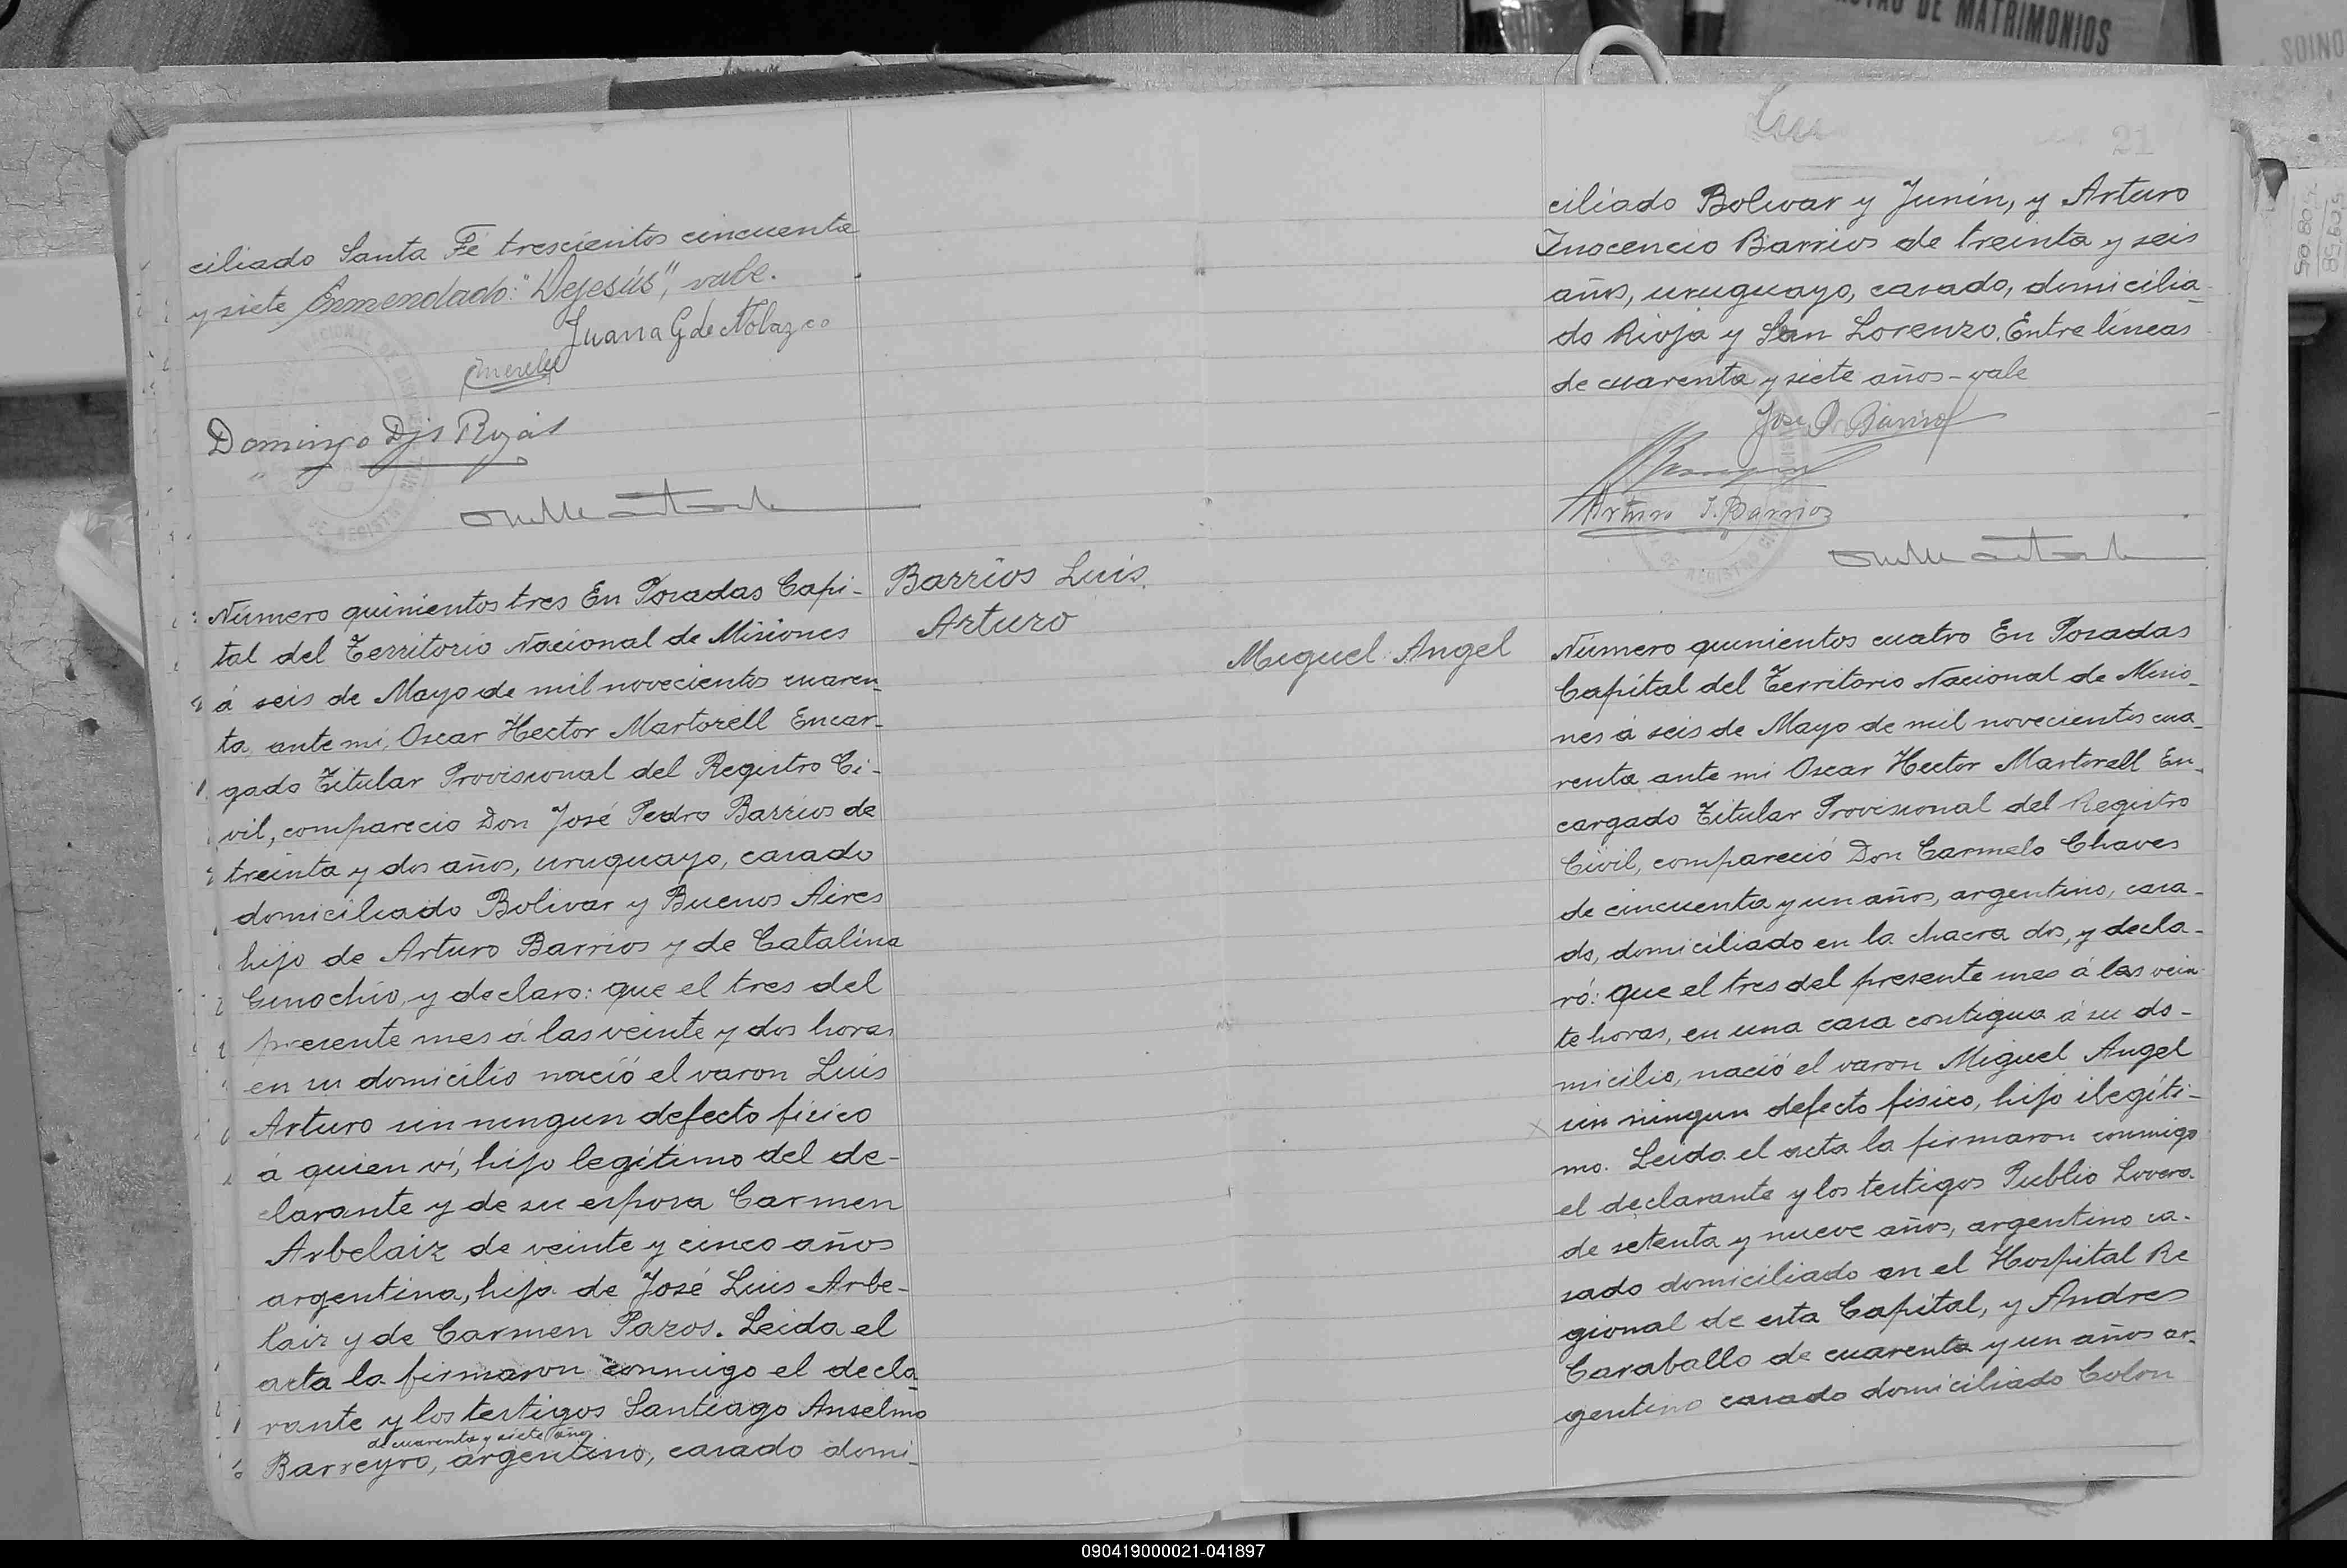 DE MATRIMONIOS
21
ciliado Santa Fé trescientos cincuenta
y siete Enmendado: "Dejesús", vale.
Juana G de Nolazco
Domingo Djs Rojas
Barrios Luis
Arturo
Número quinientos tres En Posadas Capi-
tal del Territorio Nacional de Misiones
á seis de Mayo de mil novecientos cuaren-
ta, ante mi, Oscar Hector Martorell Encar-
gado Titular Provisional del Registro Ci-
vil, compareció Don José Pedro Barrios de
treinta y dos años, uruguayo, casado
domiciliado Bolivar y Buenos Aires
hijo de Arturo Barrios y de Catalina
Ginochio, y declaro: que el tres del
presente mes á las veinte y dos horas
en su domicilio nació el varon Luis
Arturo sin ningun defecto fisico
á quien ví, hijo legítimo del de-
clarante y de su esposa Carmen
Arbelaiz de veinte y cinco años
argentina, hija de José Luis Arbe-
laiz y de Carmen Pazos. Leida el
acta la firmaron conmigo el decla-
rante y los testigos Santiago Anselmo
de cuarenta y siete años
Barreyro, argentino, casado domi-
ciliado Bolivar y Junín, y Arturo
Inocencio Barrios de treinta y seis
años, uruguayo, casado, domicilia-
do Rioja y San Lorenzo. Entre líneas
de cuarenta y siete años - vale
José P. Barrios
Arturo I. Barrios
Miguel Angel
Número quinientos cuatro En Posadas
Capital del Territorio Nacional de Misio-
nes á seis de Mayo de mil novecientos cua-
renta, ante mi Oscar Hector Martorell En-
cargado Titular Provisional del Registro
Civil, compareció Don Carmelo Chaves
de cincuenta y un años, argentino, casa-
do, domiciliado en la chacra dos, y decla-
ró: que el tres del presente mes á las vein-
te horas, en una casa contigua á su do-
micilio, nació el varon Miguel Angel
sin ningun defecto fisico, hijo ilegíti-
mo. Leida el acta la firmaron conmigo
el declarante y los testigos Publio Lovera
de setenta y nueve años, argentino ca-
sado domiciliado en el Hospital Re
gional de esta Capital, y Andres
Caraballo de cuarenta y un años ar-
gentino casado domiciliado Colon
090419000021-041897